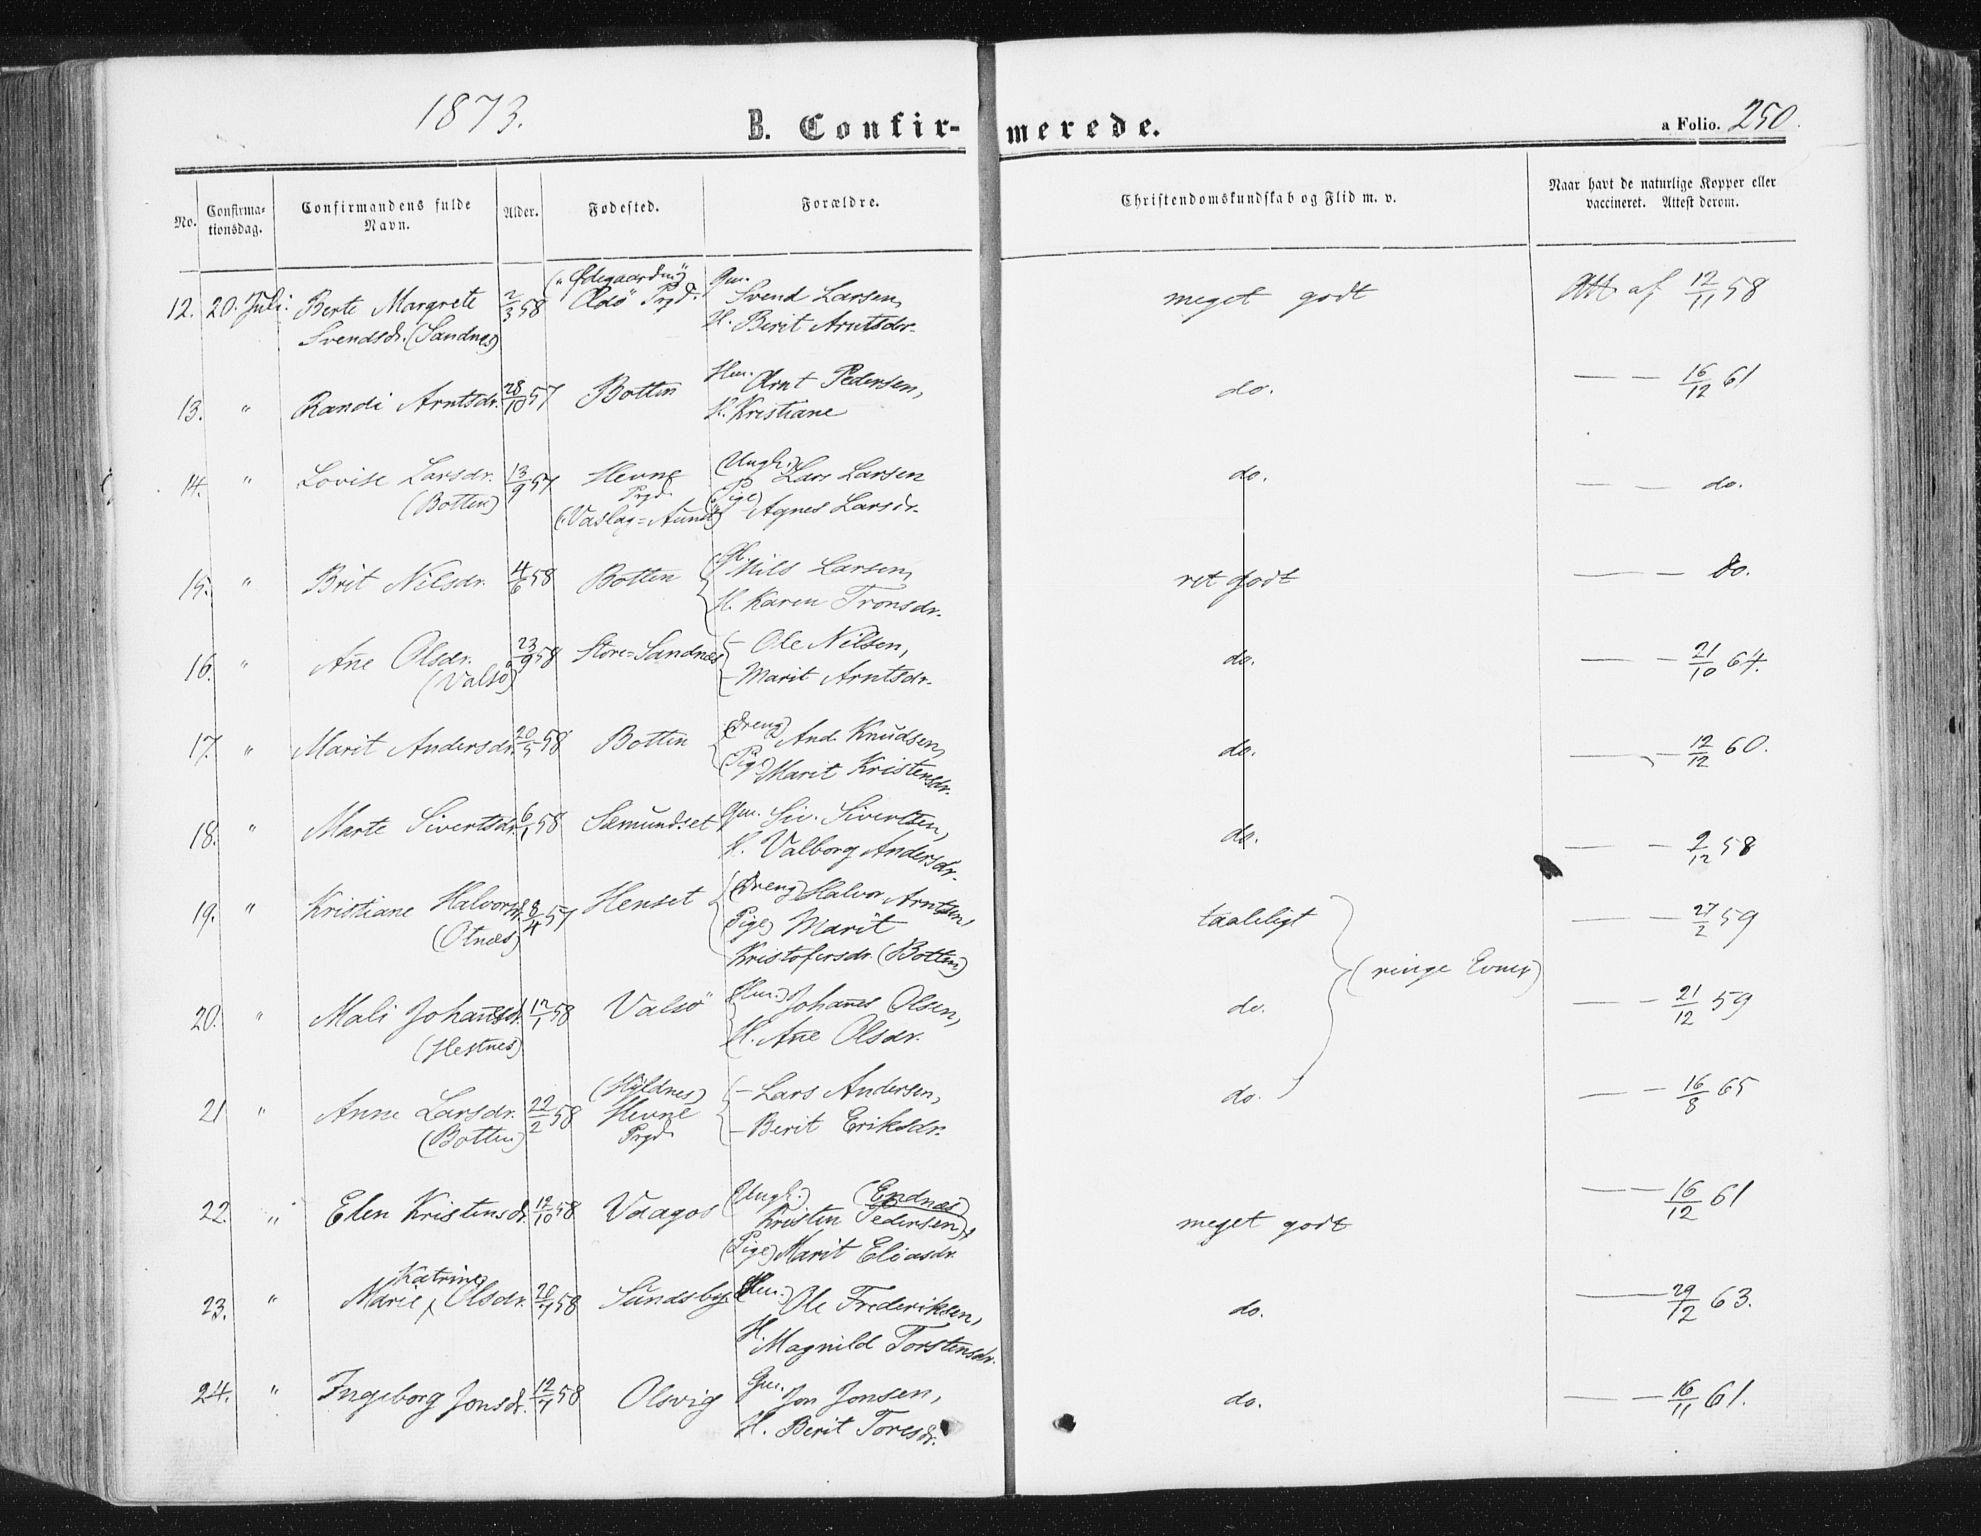 1873.
B. Confirmerede.
a Folio. 250.
No. Confirmationsdag. Confirmandens fulde Navn. Alder. Fødested. Forældre. Christendomskundskab og Flid m. v. Naar havt de naturlige Kopper eller vaccineret. Attest derom.
12. 20. Juli. Berte Margrete 2/3 58 ("Ødegaarden") Ædø Prgd. Gm. Svend Larsen, meget godt Att af 12/11 58
Svendsdr. (Sandnes) H. Berit Arntsdr.
13. " Randi Arntsdr. 28/10 57 Botten Hm. Arnt Pedersen, do. — — 16/12 61
H. Kristiane
14. " Lovise Larsdr. 13/9 57 Hevne (Ungk.) Lars Larsen do. — — do.
(Botten) Prgd. (Pige) Agnes Larsdr.
15. " Brit Nilsdr. 4/6 58 Botten Nils Larsen, ret godt — — do.
H. Karen Tronsdr.
16. " Ane Olsdr. 23/9 58 Store=Sandnes — Ole Nilsen, do. — — 21/10 64.
(Valsø) — Marit Arntsdr.
17. " Marit Andersdr. 20/5 58 Botten (Dreng) And. Knudsen, do. — — 12/12 60.
(Pige) Marit Kristensdr.
18. " Marte Sivertsdr. 6/1 58 Sæmundset Gm. Siv. Sivertsen, do. — — 2/12 58
H. Valborg Andersdr.
19. " Kristiane Halvorsdr. 8/4 57 Henset (Dreng) Halvor Arntsen, taaleligt — — 27/2 59
(Otnæs) (Pige) Marit
Kristofersdr. (Botten) (ringe Evner)
20. " Mali Johansdr. 12/1 58 Valsø (Hm.) Johanes Olsen, do. — — 21/12 59
(Hestnes) H. Ane Olsdr.
21 " Anne Larsdr. 22/2 58 (Hyldnes) Hevne — Lars Andersen, do. — — 16/8 65
(Botten) Prgd. — Berit Eriksdr.
22. " Elen Kristensdr. 12/10 58 Vaagos (Ungk.) Kristen Pedersen (Endnæs), meget godt — — 16/12 61
(Pige) Marit Eliasdr.
23. " Marie Katrine Olsdr. 20/7 58 Sundsby (Hm.) Ole Frederiksen, do. — 29/12 63.
H. Magnild Torstensdr.
24. " Ingeborg Jonsdr. 12/7 58 Olsvig Gm. Jon Jonsen, do. — — 16/11 61.
H. Berit Toresdr.